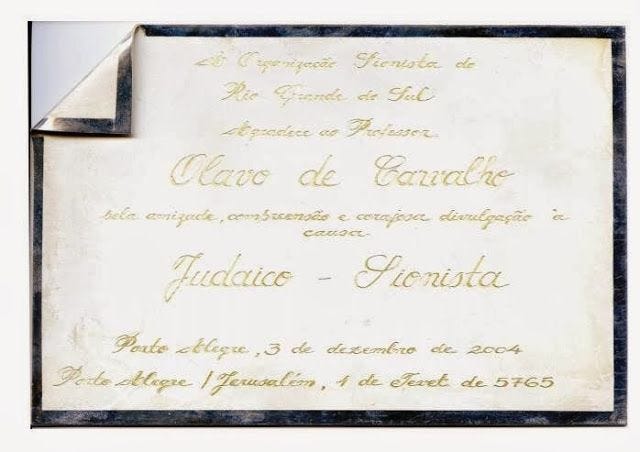 A Organização Sionista do
Rio Grande do Sul
Agradece ao Professor
Olavo de Carvalho
pela amizade, compreensão e corajosa divulgação à
causa
Judaico - Sionista
Porto Alegre, 3 de dezembro de 2004
Porto Alegre / Jerusalém, 1 de Tevet de 5765